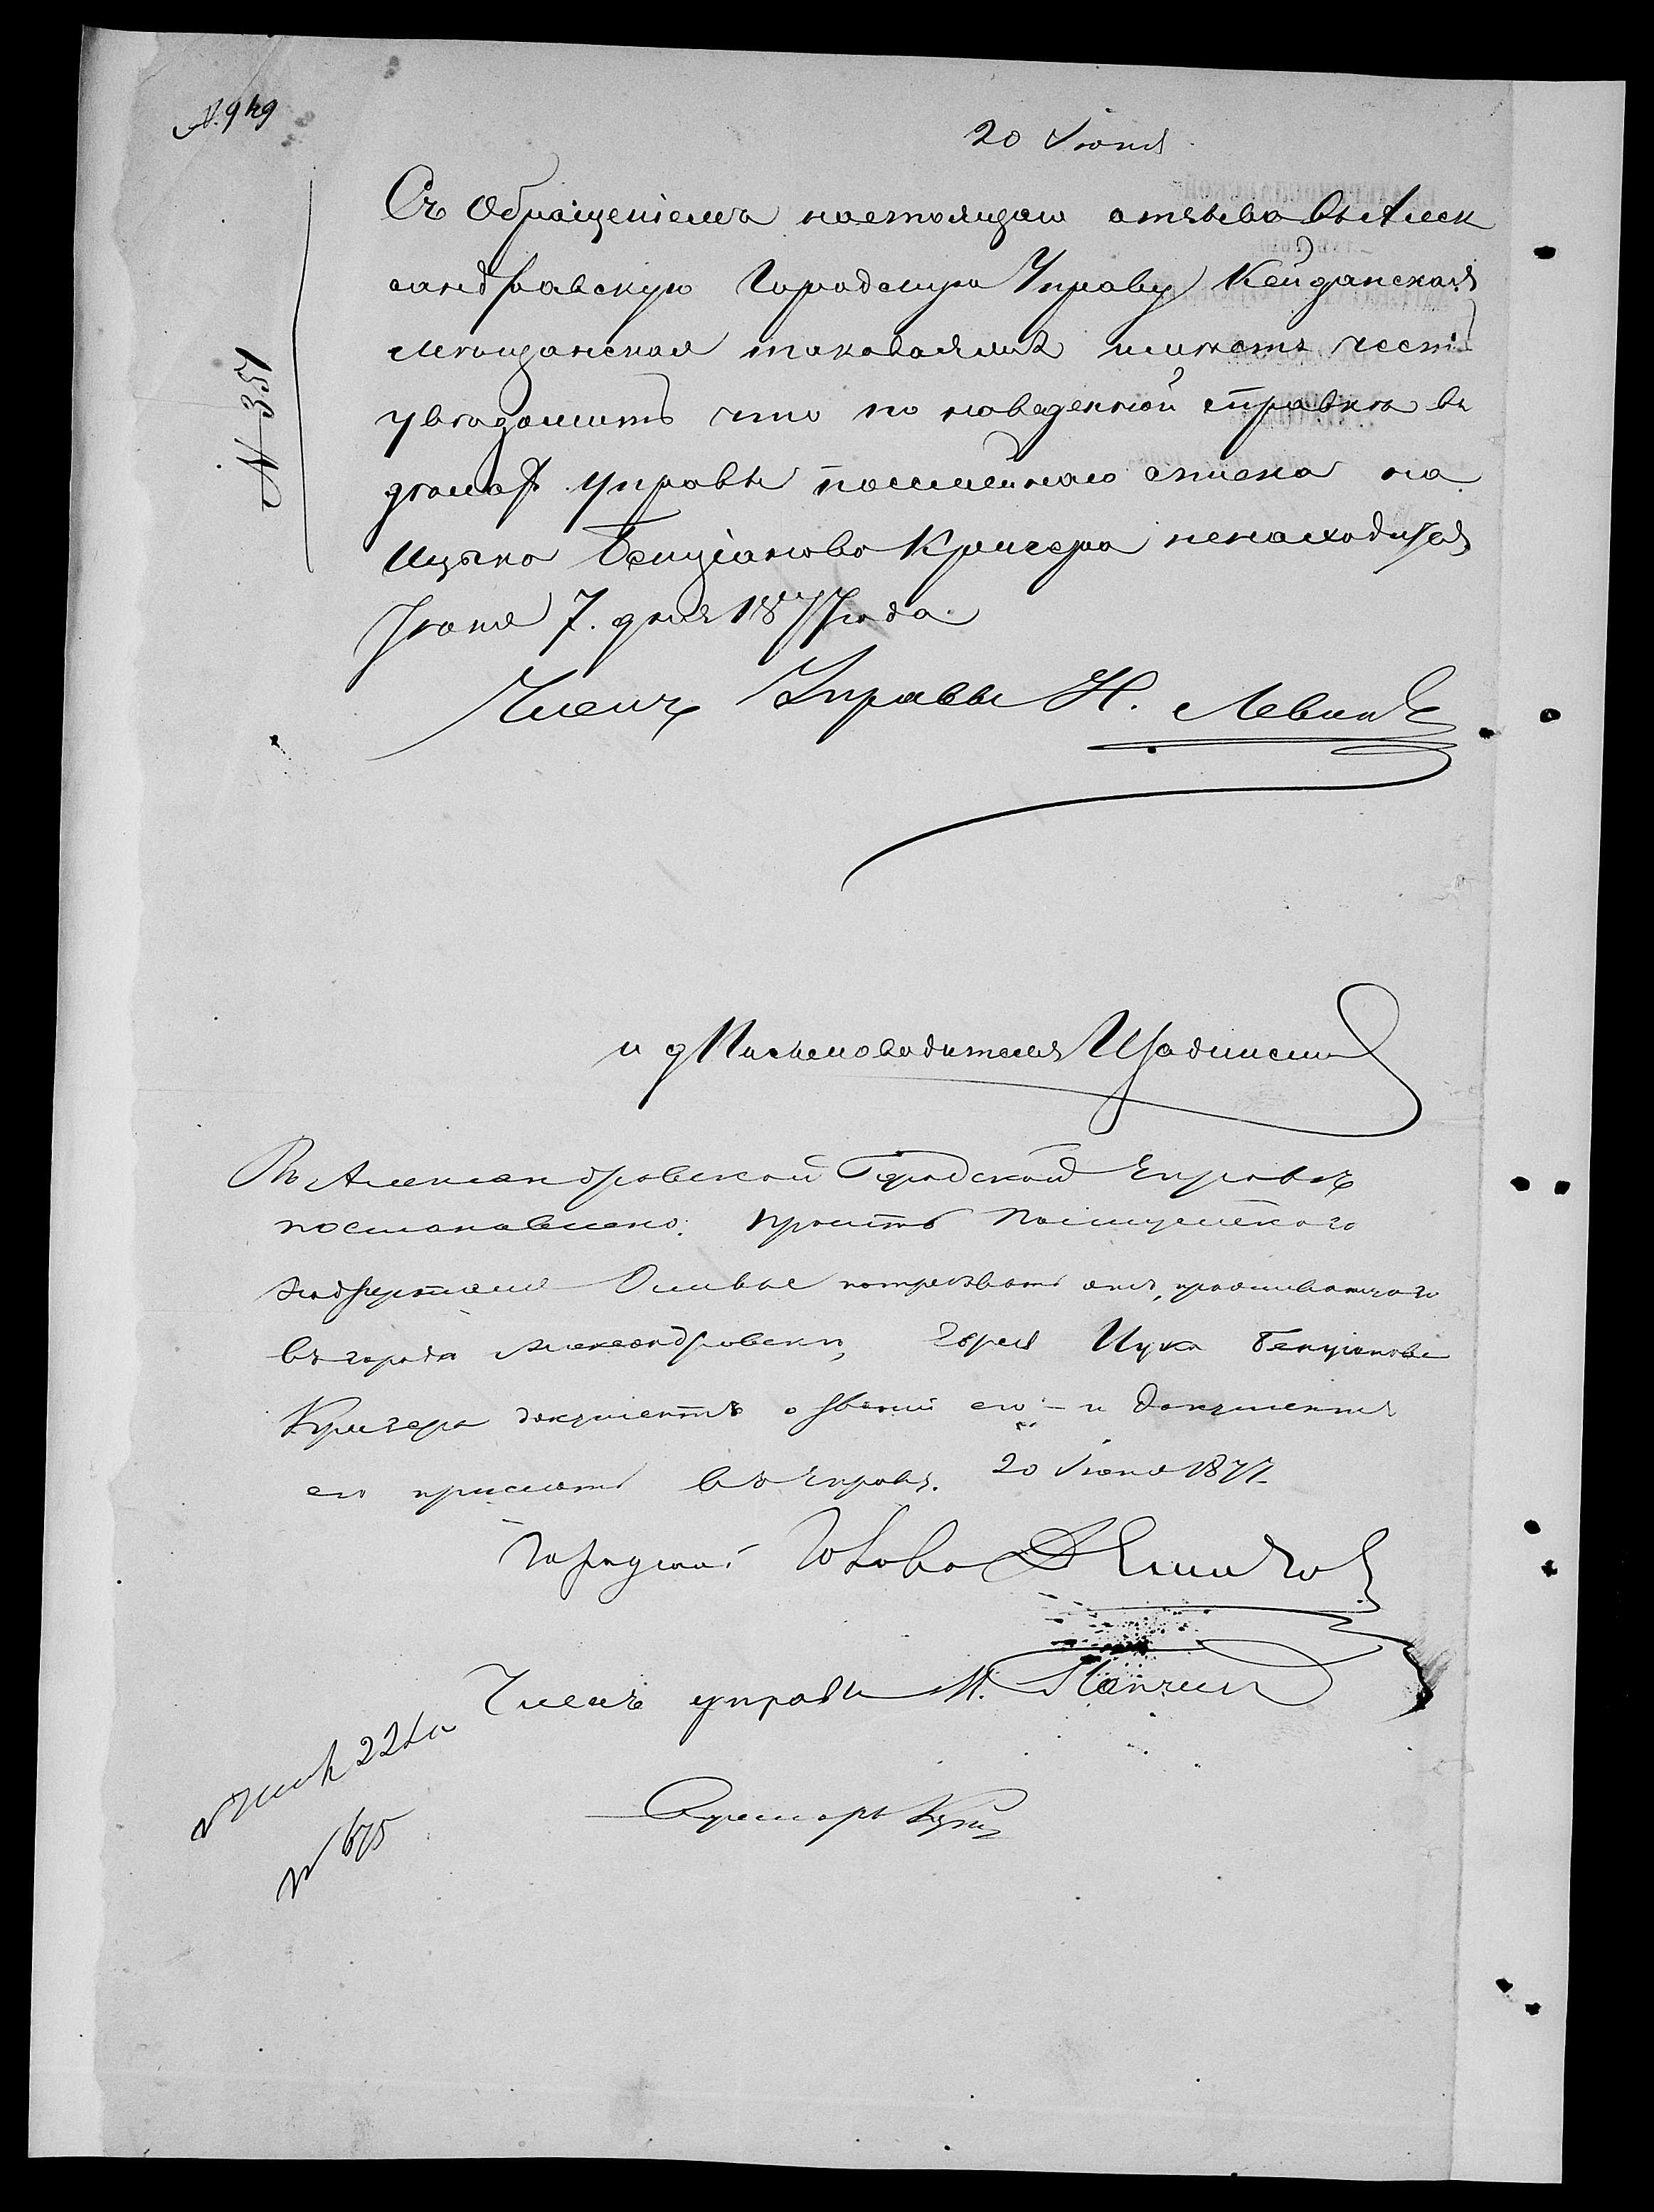 № 949
20 Июня
Съ Обращеніемъ настоящаго отзыва въ Алек
сандровскую Городскую Управу Кейданская
мѣщанская таковаяжъ имѣетъ честь
увѣдомить что по наведенной справкѣ въ
дѣлахъ управы посемейнаго списка на
Ицыка Бенціанова Кригера ненаходится
Іюня 7. дня 1877 года
№ 351
Членъ Управы Н. Левинъ
и д Письмоводителя
Въ Александровской Городской Управѣ
постановлено: просить Полицейскаго
Надзирателя потребовать отъ, проживающаго
въ городѣ Александровскѣ, Еврея Ицка Бенціанова
Кригера документъ о званіи его и документъ
его прислать въ Управу. 20 Июня 1877
Городской Голова
Членъ управы М.
№ 675